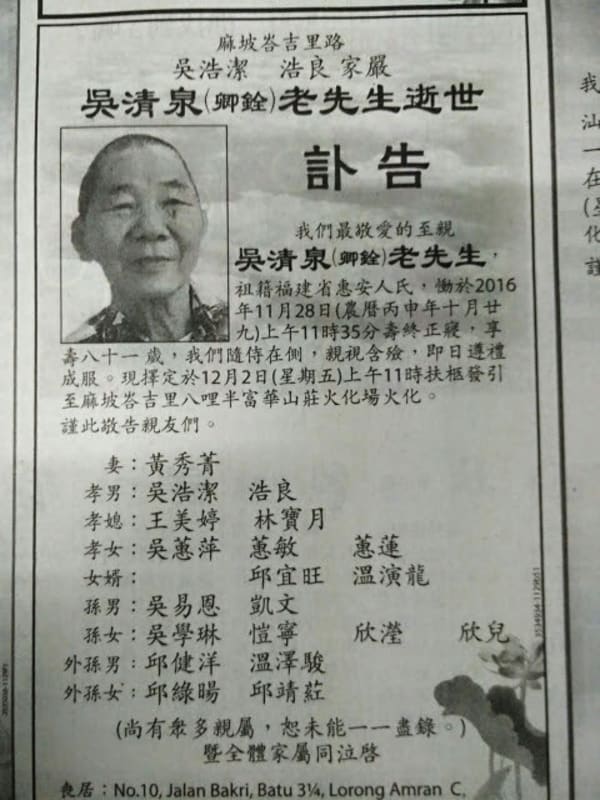 麻坡峇吉里路
吳浩潔 浩良 家嚴
吳清泉(卿銓)老先生逝世
訃告
我們最敬愛的至親
吳清泉(卿銓)老先生，
祖籍福建省惠安人氏，慟於2016
年11月28日(農曆丙申年十月廿
九)上午11時35分壽終正寢，享
壽八十一歲，我們隨侍在側，親視含殮，即日遵禮
成服。現擇定於12月2日(星期五)上午11時扶柩發引
至麻坡峇吉里八哩半富華山莊火化場火化。
謹此敬告親友們。
妻：黃秀菁
孝男：吳浩潔 浩良
孝媳：王美婷 林寶月
孝女：吳蕙萍 蕙敏 蕙蓮
女婿： 邱宜旺 溫演龍
孫男：吳易恩 凱文
孫女：吳學琳 愷寧 欣瀅 欣兒
外孫男：邱健洋 溫澤駿
外孫女：邱綠暘 邱靖莊
(尚有眾多親屬，恕未能一一盡錄。)
暨全體家屬同泣啓
喪居：No.10, Jalan Bakri, Batu 3¼, Lorong Amran C,
我
汕
一
在
(星
化
謹